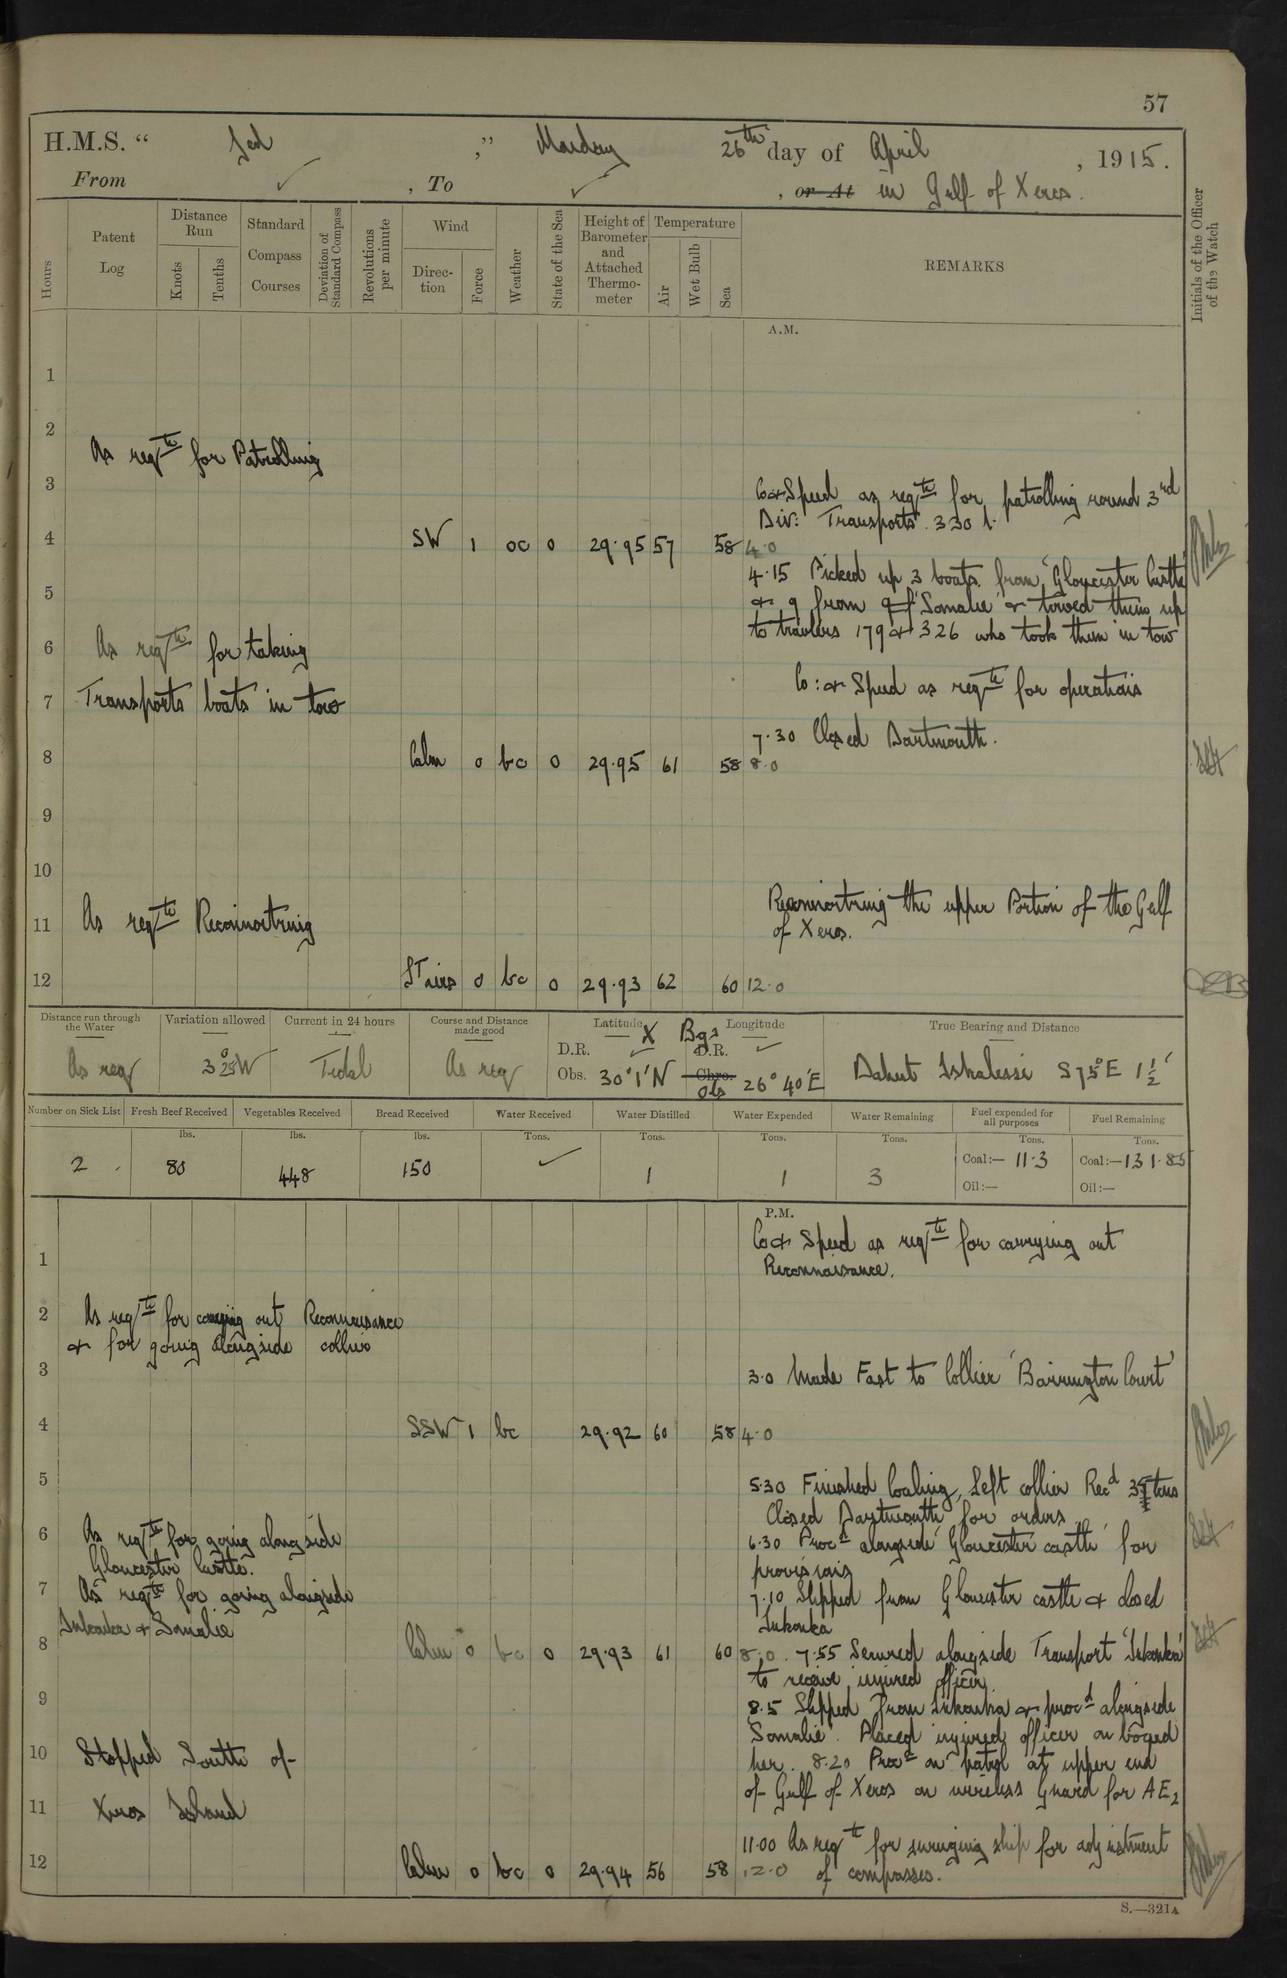 57
H.M.S. " Jed ," Monday 26th day of April , 1915.
From ✓ , To ✓ , or At in Gulf of Xeros.
Hours
Patent Log
Distance Run
Knots
Tenths
Standard Compass Courses
Deviation of Standard Compass
Revolutions per minute
Wind
Direction
Force
Weather
State of the Sea
Height of Barometer and Attached Thermometer
Temperature
Air
Wet Bulb
Sea
REMARKS
Initials of the Officer of the Watch
A.M.
1
2
As reqte for Patrolling
3
Co & Speed as reqte for patrolling round 3rd
Div: Transports. 330
4 SW 1 oc 0 29.95 57 58 4.0
4.15 Picked up 3 boats from 'Gloucester Castle'
5
& 9 from 'Somalie' & towed them up
to trawlers 179 & 326 who took them in tow
6 As reqte for taking
Co: & Speed as reqte for operations
7 Transports boats in tow
7.30 Closed Dartmouth.
8 Calm 0 bc 0 29.95 61 58 8.0
9
10
Reconnortring the upper Portion of the Gulf
11 As reqte Reconnortring
of Xeros.
12 Lt airs 0 bc 0 29.93 62 60 12.0
Distance run through the Water
Variation allowed
Current in 24 hours
Course and Distance made good
Latitude X Bgs Longitude
True Bearing and Distance
D.R. ✓ D.R. ✓
As req 3°25W Tidal As req
Obs. 30° 1' N Chro. Obs 26° 40' E
S 75° E 1 1/2'
Number on Sick List
Fresh Beef Received
Vegetables Received
Bread Received
Water Received
Water Distilled
Water Expended
Water Remaining
Fuel expended for all purposes
Fuel Remaining
lbs. lbs. lbs. Tons. Tons. Tons. Tons. Tons. Tons.
2 80 448 150 ✓ 1 1 3 Coal:— 11.3 Coal:— 131.85
Oil:— Oil:—
P.M.
Co & Speed as reqte for carrying out
1
Reconnaisance.
2 As reqte for carrying out Reconnaisance
& for going alongside collier
3
3.0 Made Fast to Collier 'Barrington Court'
4 SSW 1 bc 29.92 60 58 4.0
5
5.30 Finished Coaling, Left collier Recd tons
Closed Dartmouth for orders
6 As reqte for going alongside
6.30 Procd alongside 'Gloucester castle' for
Gloucester Castle.
provisions
7 As reqte for going alongside
7.10 Slipped from Gloucester castle & closed
Inkonka & Somalie
Inkonka
8 Calm 0 bc 0 29.93 61 60 8.0 7.55 Secured alongside Transport 'Inkonka'
to receive injured officer
9
8.5 Slipped from Inkonka & procd alongside
Somalie. Placed injured officer on board
10 Stopped South of
her. 8.20 Procd on patrol at upper end
of Gulf of Xeros on wireless Guard for AE2
11 Xeros Island
11.00 As reqte for swinging ship for adjustment
12 Calm 0 bc 0 29.94 56 58 12.0 of compasses.
S.—321A